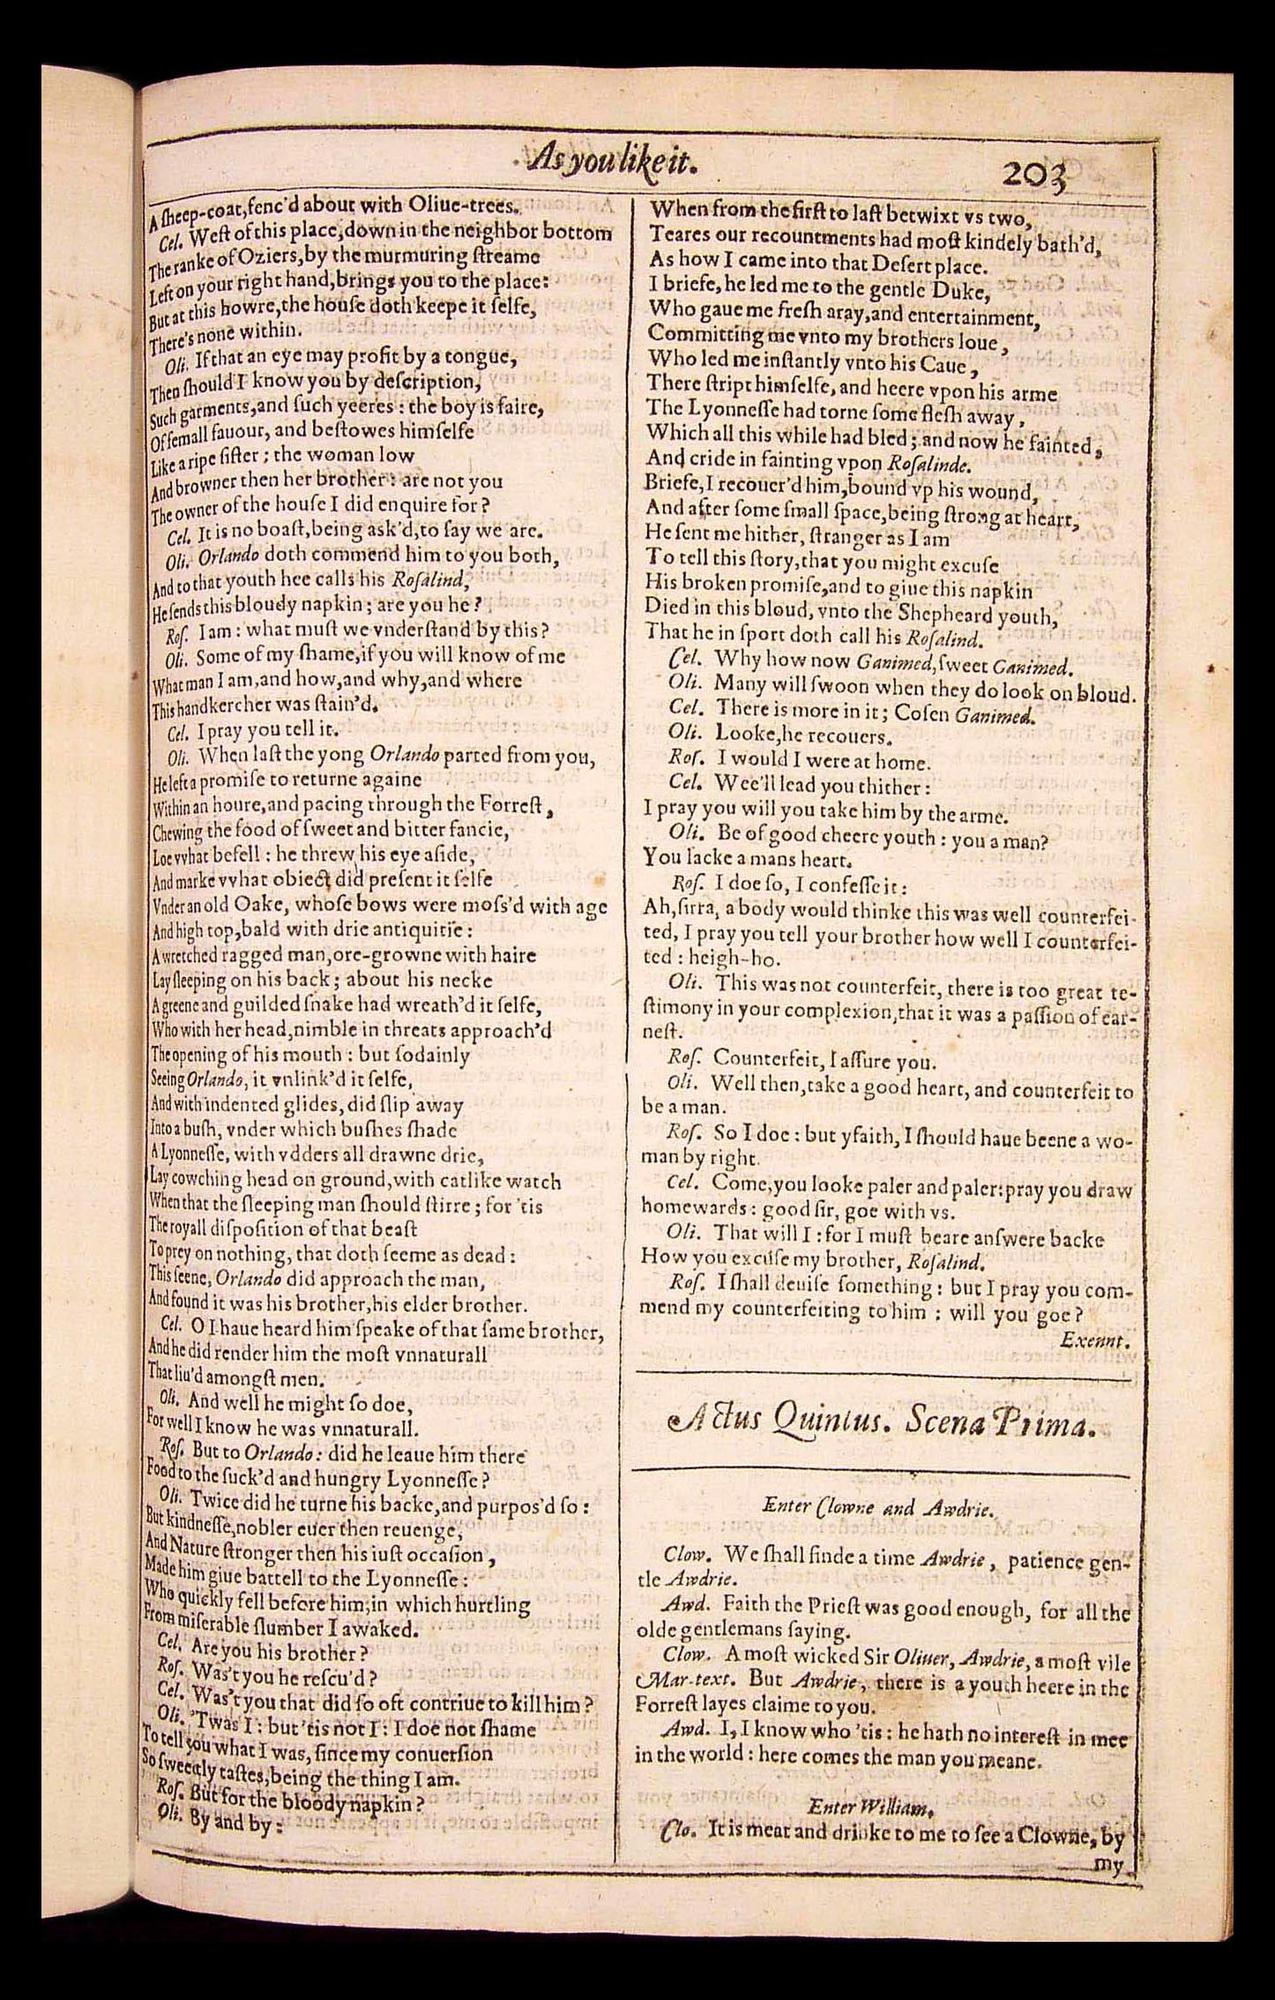 As you like it.
203
A ſheep-coat, fenc'd about with Oliue-trees.
Cel. Weſt of this place, down in the neighbor bottom
The ranke of Oziers, by the murmuring ſtreame
Left on your right hand, brings you to the place:
But at this howre, the houſe doth keepe it ſelfe,
There's none within.
Oli. If that an eye may profit by a tongue,
Then ſhould I know you by deſcription,
Such garments, and ſuch yeeres: the boy is faire,
Of femall fauour, and beſtowes himſelfe
Like a ripe ſiſter: the woman low
And browner then her brother: are not you
The owner of the houſe I did enquire for?
Cel. It is no boaſt, being ask'd, to ſay we are.
Oli. Orlando doth commend him to you both,
And to that youth hee calls his Roſalind,
He ſends this bloudy napkin; are you he?
Roſ. I am: what muſt we vnderſtand by this?
Oli. Some of my ſhame, if you will know of me
What man I am, and how, and why, and where
This handkercher was ſtain'd.
Cel. I pray you tell it.
Oli. When laſt the yong Orlando parted from you,
He left a promiſe to returne againe
Within an houre, and pacing through the Forreſt,
Chewing the food of ſweet and bitter fancie,
Loe vvhat befell: he threw his eye aſide,
And marke vvhat obiect did preſent it ſelfe
Vnder an old Oake, whoſe bows were moſs'd with age
And high top, bald with drie antiquitie:
A wretched ragged man, ore-growne with haire
Lay ſleeping on his back; about his necke
A greene and guilded ſnake had wreath'd it ſelfe,
Who with her head, nimble in threats approach'd
The opening of his mouth: but ſodainly
Seeing Orlando, it vnlink'd it ſelfe,
And with indented glides, did ſlip away
Into a buſh, vnder which buſhes ſhade
A Lyonneſſe, with vdders all drawne drie,
Lay cowching head on ground, with catlike watch
When that the ſleeping man ſhould ſtirre; for 'tis
The royall diſpoſition of that beaſt
To prey on nothing, that doth ſeeme as dead:
This ſeene, Orlando did approach the man,
And found it was his brother, his elder brother.
Cel. O I haue heard him ſpeake of that ſame brother,
And he did render him the moſt vnnaturall
That liu'd amongſt men.
Oli. And well he might ſo doe,
For well I know he was vnnaturall.
Roſ. But to Orlando: did he leaue him there
Food to the ſuck'd and hungry Lyonneſſe?
Oli. Twice did he turne his backe, and purpos'd ſo:
But kindneſſe, nobler euer then reuenge,
And Nature ſtronger then his iuſt occaſion,
Made him giue battell to the Lyonneſſe:
Who quickly fell before him, in which hurtling
From miſerable ſlumber I awaked.
Cel. Are you his brother?
Roſ. Was't you he reſcu'd?
Cel. Was't you that did ſo oft contriue to kill him?
Oli. 'Twas I: but 'tis not I: I doe not ſhame
To tell you what I was, ſince my conuerſion
So ſweetly taſtes, being the thing I am.
Roſ. But for the bloody napkin?
Oli. By and by:
When from the firſt to laſt betwixt vs two,
Teares our recountments had moſt kindely bath'd,
As how I came into that Deſert place.
I briefe, he led me to the gentle Duke,
Who gaue me freſh aray, and entertainment,
Committing me vnto my brothers loue,
Who led me inſtantly vnto his Caue,
There ſtript himſelfe, and heere vpon his arme
The Lyonneſſe had torne ſome fleſh away,
Which all this while had bled; and now he fainted,
And cride in fainting vpon Roſalinde.
Briefe, I recouer'd him, bound vp his wound,
And after ſome ſmall ſpace, being ſtrong at heart,
He ſent me hither, ſtranger as I am
To tell this ſtory, that you might excuſe
His broken promiſe, and to giue this napkin
Died in this bloud, vnto the Shepheard youth,
That he in ſport doth call his Roſalind.
Cel. Why how now Ganimed, ſweet Ganimed.
Oli. Many will ſwoon when they do look on bloud.
Cel. There is more in it; Coſen Ganimed.
Oli. Looke, he recouers.
Roſ. I would I were at home.
Cel. Wee'll lead you thither:
I pray you will you take him by the arme.
Oli. Be of good cheere youth: you a man?
You lacke a mans heart.
Roſ. I doe ſo, I confeſſe it:
Ah, ſirra, a body would thinke this was well counterfei-
ted, I pray you tell your brother how well I counterfei-
ted: heigh-ho.
Oli. This was not counterfeit, there is too great te-
ſtimony in your complexion, that it was a paſſion of ear-
neſt.
Roſ. Counterfeit, I aſſure you.
Oli. Well then, take a good heart, and counterfeit to
be a man.
Roſ. So I doe: but yfaith, I ſhould haue beene a wo-
man by right.
Cel. Come, you looke paler and paler: pray you draw
homewards: good ſir, goe with vs.
Oli. That will I: for I muſt beare anſwere backe
How you excuſe my brother, Roſalind.
Roſ. I ſhall deuiſe ſomething: but I pray you com-
mend my counterfeiting to him: will you goe?
Exeunt.
Actus Quintus. Scena Prima.
Enter Clowne and Awdrie.
Clow. We ſhall finde a time Awdrie, patience gen-
tle Awdrie.
Awd. Faith the Prieſt was good enough, for all the
olde gentlemans ſaying.
Clow. A moſt wicked Sir Oliuer, Awdrie, a moſt vile
Mar-text. But Awdrie, there is a youth heere in the
Forreſt layes claime to you.
Awd. I, I know who 'tis: he hath no intereſt in mee
in the world: here comes the man you meane.
Enter William.
Clo. It is meat and drinke to me to ſee a Clowne, by
my